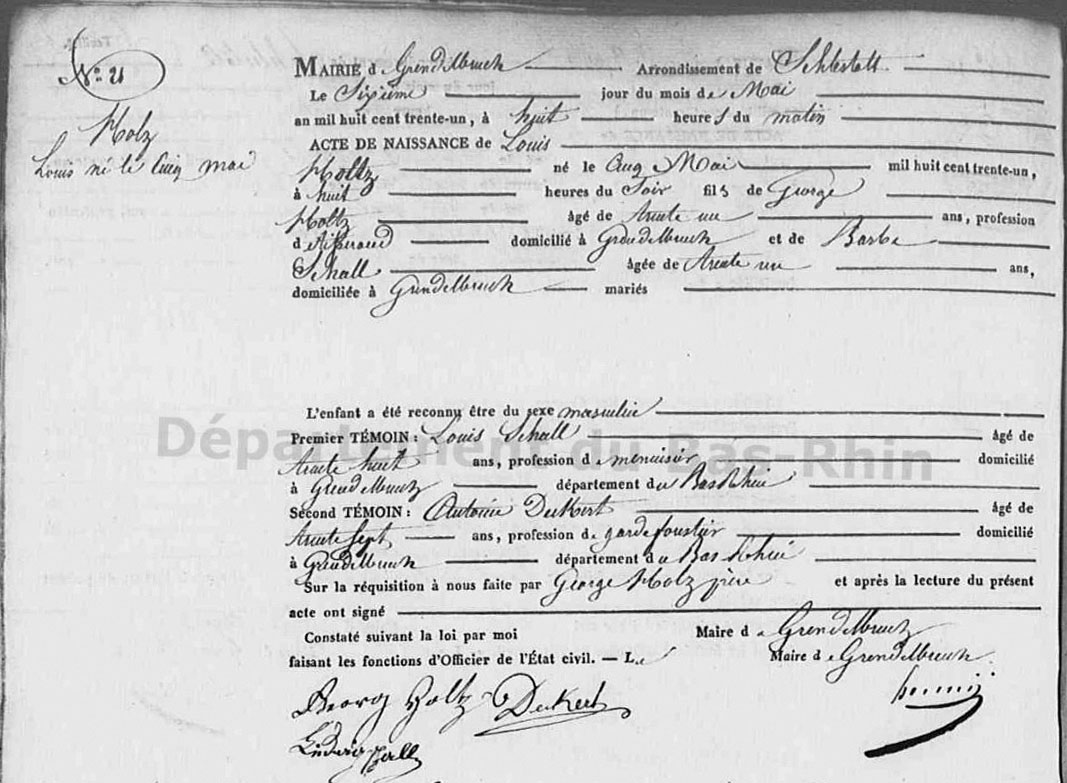 N.° 21
Holz
Louis né le Cinq mai
MAIRIE de Grendelbruch Arrondissement de Schlestatt
Le Sixième jour du mois de Mai
an mil huit cent trente-un, à huit heures du matin
ACTE DE NAISSANCE de Louis
Holtz né le Cinq Mai mil huit cent trente-un,
à huit heures du Soir fils de George
Holtz âgé de trente un ans, profession
domicilié à Grendelbruch et de Barbe
Schall âgée de trente un ans,
domiciliée à Grendelbruch mariés
L'enfant a été reconnu être du sexe masculin
Premier TÉMOIN: Louis Schall âgé de
trente huit ans, profession de menuisier domicilié
à Grendelbruch département du Bas Rhin
Second TÉMOIN: Antoine Deckert âgé de
trente Sept ans, profession de garde forestier domicilié
à Grendelbruch département du Bas Rhin
Sur la réquisition à nous faite par George Holz père et après la lecture du présent
acte ont signé
Constaté suivant la loi par moi Maire de Grendelbruch
faisant les fonctions d'Officier de l'État civil. — Le Maire de Grendelbruch
Georg Holtz Deckert
Ludwig Schall
Département du Bas-Rhin